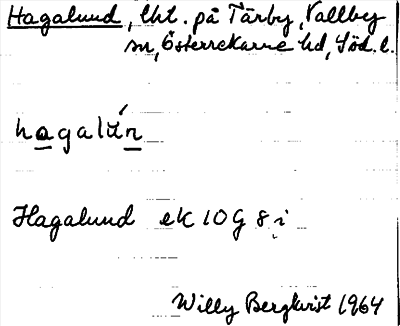 Hagalund, lht. på Tärby, Vallby
sn, Österrekarne hd, Söd. l.
hagalún
Hagalund ek 10G 8 i
Willy Bergkvist 1964